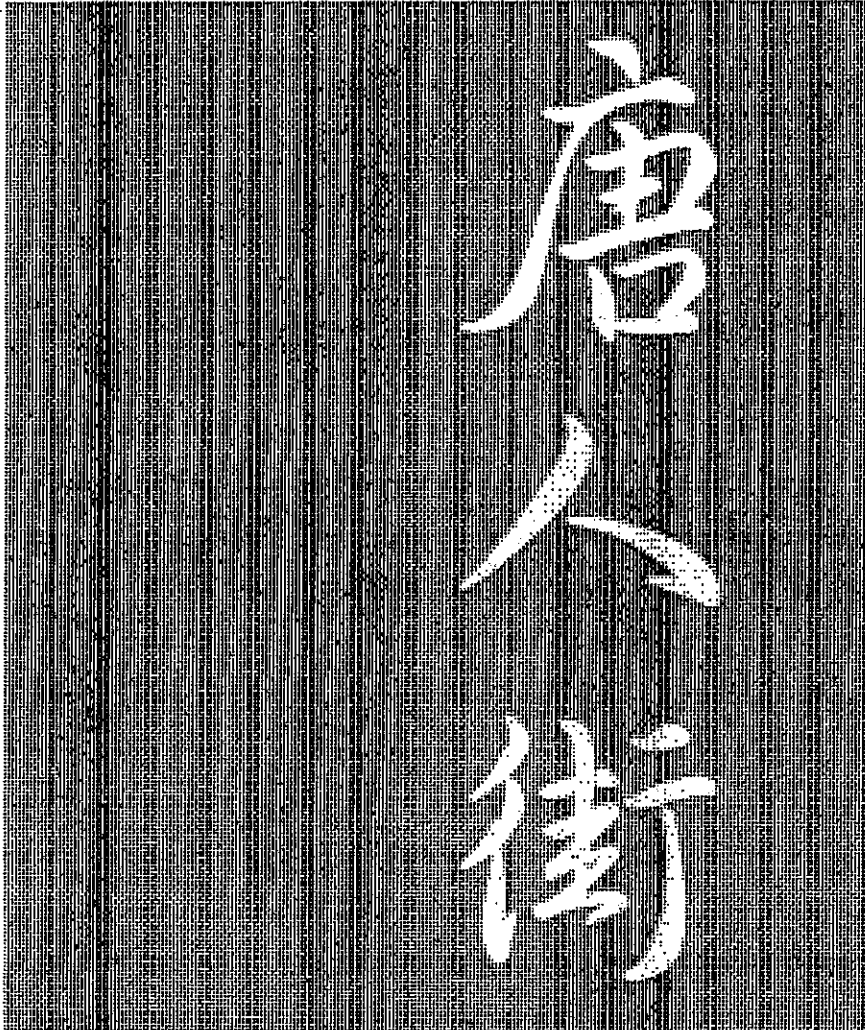 唐人街